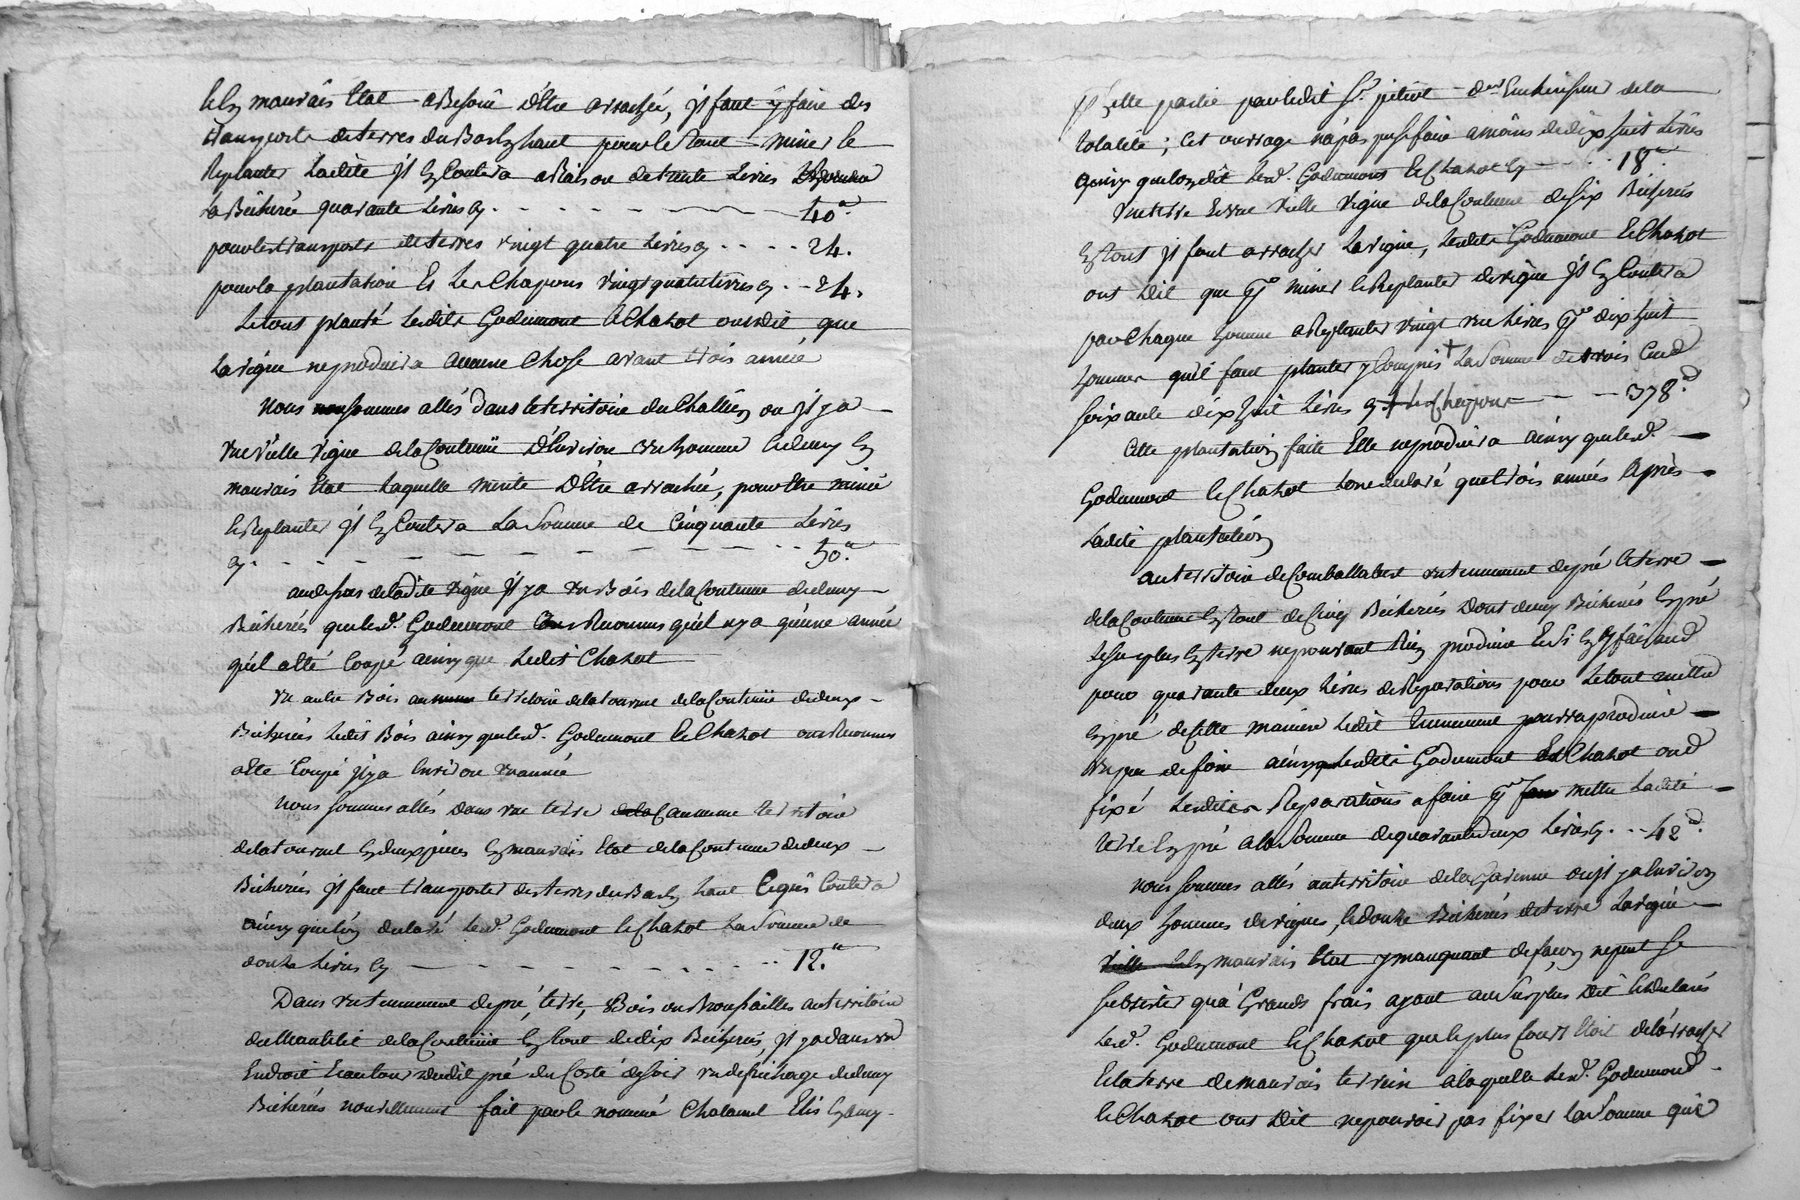 mauvais Etat a Besoin d'Etre arrachée, jl faut y faire des
transports de terres du Bas en haut pour le tout miner le
Replanter Ladite jl En Coutera a Raison de trente Livres
la Bicherée quarante Livres cy - - - - 40.#
pour les transports de terres vingt quatre Livres cy - - - - 24.
pour la plantation Et Les Chapons vingt quatre Livres cy - - 24.
Le tout planté Lesdits Godumont & Chazot ont dit que
La vigne ne produira aucune Chose avant trois année
Nous sommes allés dans le territoire du ou jl y a
vne vielle vigne de la Contenüe d'Environ vn homme & demy En
mauvais Etat Laquelle merite D'Etre arrachée, pour Etre minée
& Replanter jl En Coutera La Somme de Cinquante Livres
cy - - - - - - - - 50.#
au dessus de ladite vigne jl y a vn Bois de la Contenue de demy
Bicherées que led. Godumont Reconnus qu'il n'y a qu'une année
qu'il a été Coupé ainsy que Ledit Chazot
vn autre Bois au même territoire de la tourne de la Contenüe de deux
Bicherées Ledit Bois ainsy que led. Godumont & Chazot ont Reconnus
a été Coupé jl y a Environ vn année
Nous sommes allés Dans vne terre territoire
de la tourne En deux pieces En mauvais Etat de la Contenue de deux
Bicherées jl faut transporter des terres du Bas En haut Ce qui Coutera
ainsy que l'on declaré Led. Godumont & Chazot La Somme de
douze Livres Cy - - - - - - - - 12.#
Dans vn tennement de pré, terre, Bois ou Broussailles au territoire
de la Contenüe En tout de dix Bicherées, jl y a dans vn
Endroit dudit pré du Costé de soir vn defrichage de demy
Bicherées nouvellement fait par le nommé Chalamel Et
Cette partie par ledit Sr. petiot de la
totalité ; Cet ouvrage n'a pas pu se faire a moins de dix huit Livres
ainsy que l'on dit Led. Godumont & Chazot Cy - - - - 18.#
vne terre Et vne vielle vigne de la Contenue de six Bicherées
En tout jl faut arracher La vigne, Lesdits Godumont & Chazot
ont Dit que pr. miner & Replanter de vigne jl En Coutera
par Chaque homme a Replanter vingt vn Livres pr. dix huit
hommes qu'il faut planter y Compris + La Somme de trois Cend
soixante dix huit Livres Cy + Les Chapons - - - 378.#
Cette plantation faite Elle ne produira ainsy que led.
Godumont & Chazot Lont declaré que trois années après
Ladite plantation
au territoire de Comballabert vn tennement de pré & terre
de la Contenue En tout de Cinq Bicherées Dont demy Bicherées En pré
Le surplus En terre ne pouvant Rien produire Et Si En y faisand
pour quarante deux Livres de Reparations pour Le tout mettre
En pré de cette maniere Ledit tennement pourra produire
vn peu de foin ainsy Lesdits Godumont & Chazot ond
fixé Lesdites Reparations a faire pr. mettre Ladite
terre En pré a la Somme de quarante deux Livres Cy - - - 42.#
Nous sommes allés au territoire de la Garenne ou jl y a Environ
deux hommes de vignes, & douze Bicherées de terre La vigne
En mauvais Etat y manquant de façon ne peut Se
subsister qu'a Grands frais ayant au Surplus Dit & declarés
Led. Godumont & Chazot que le plus Court Etoit de l'arracher
Et la terre de mauvais terrein a laquelle Led. Godumond
& Chazot ont Dit ne pouvoir pas fixer La Somme qu'il